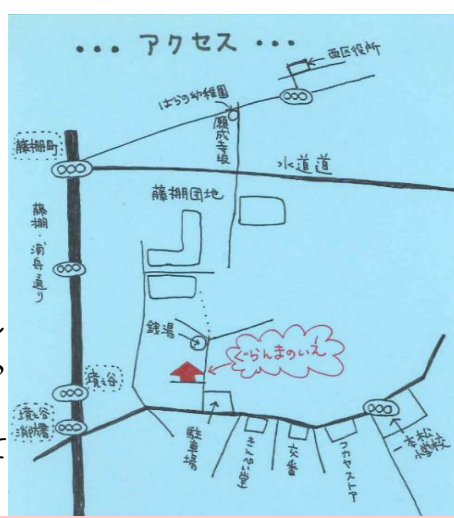 ••• アクセス •••
西区役所
ばらの幼稚園
願成寺坂
藤棚町
水道道
藤棚団地
藤棚・浦舟通り
銭湯
ぐらんまのいえ
境之谷
駐車場
きんせい堂
交番
フカヤストア
一本松小学校